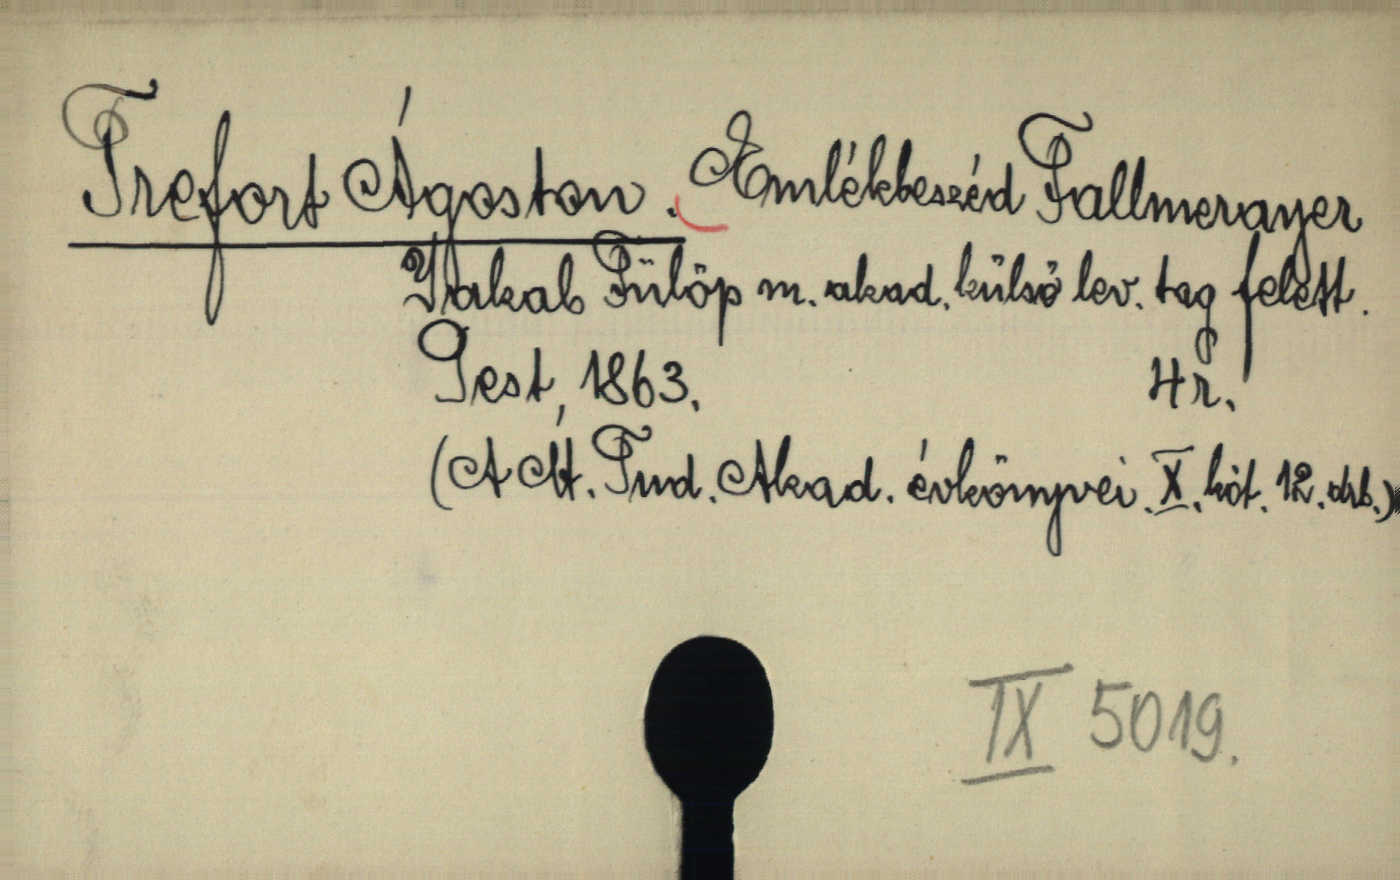 Trefort Ágoston. Emlékbeszéd Fallmerayer
Jakab Fülöp m. akad. külső lev. tag felett.
Pest, 1863. 4r.
(A M. Tud. Akad. évkönyvei. X. köt. 12. drb.)
IX 5019.